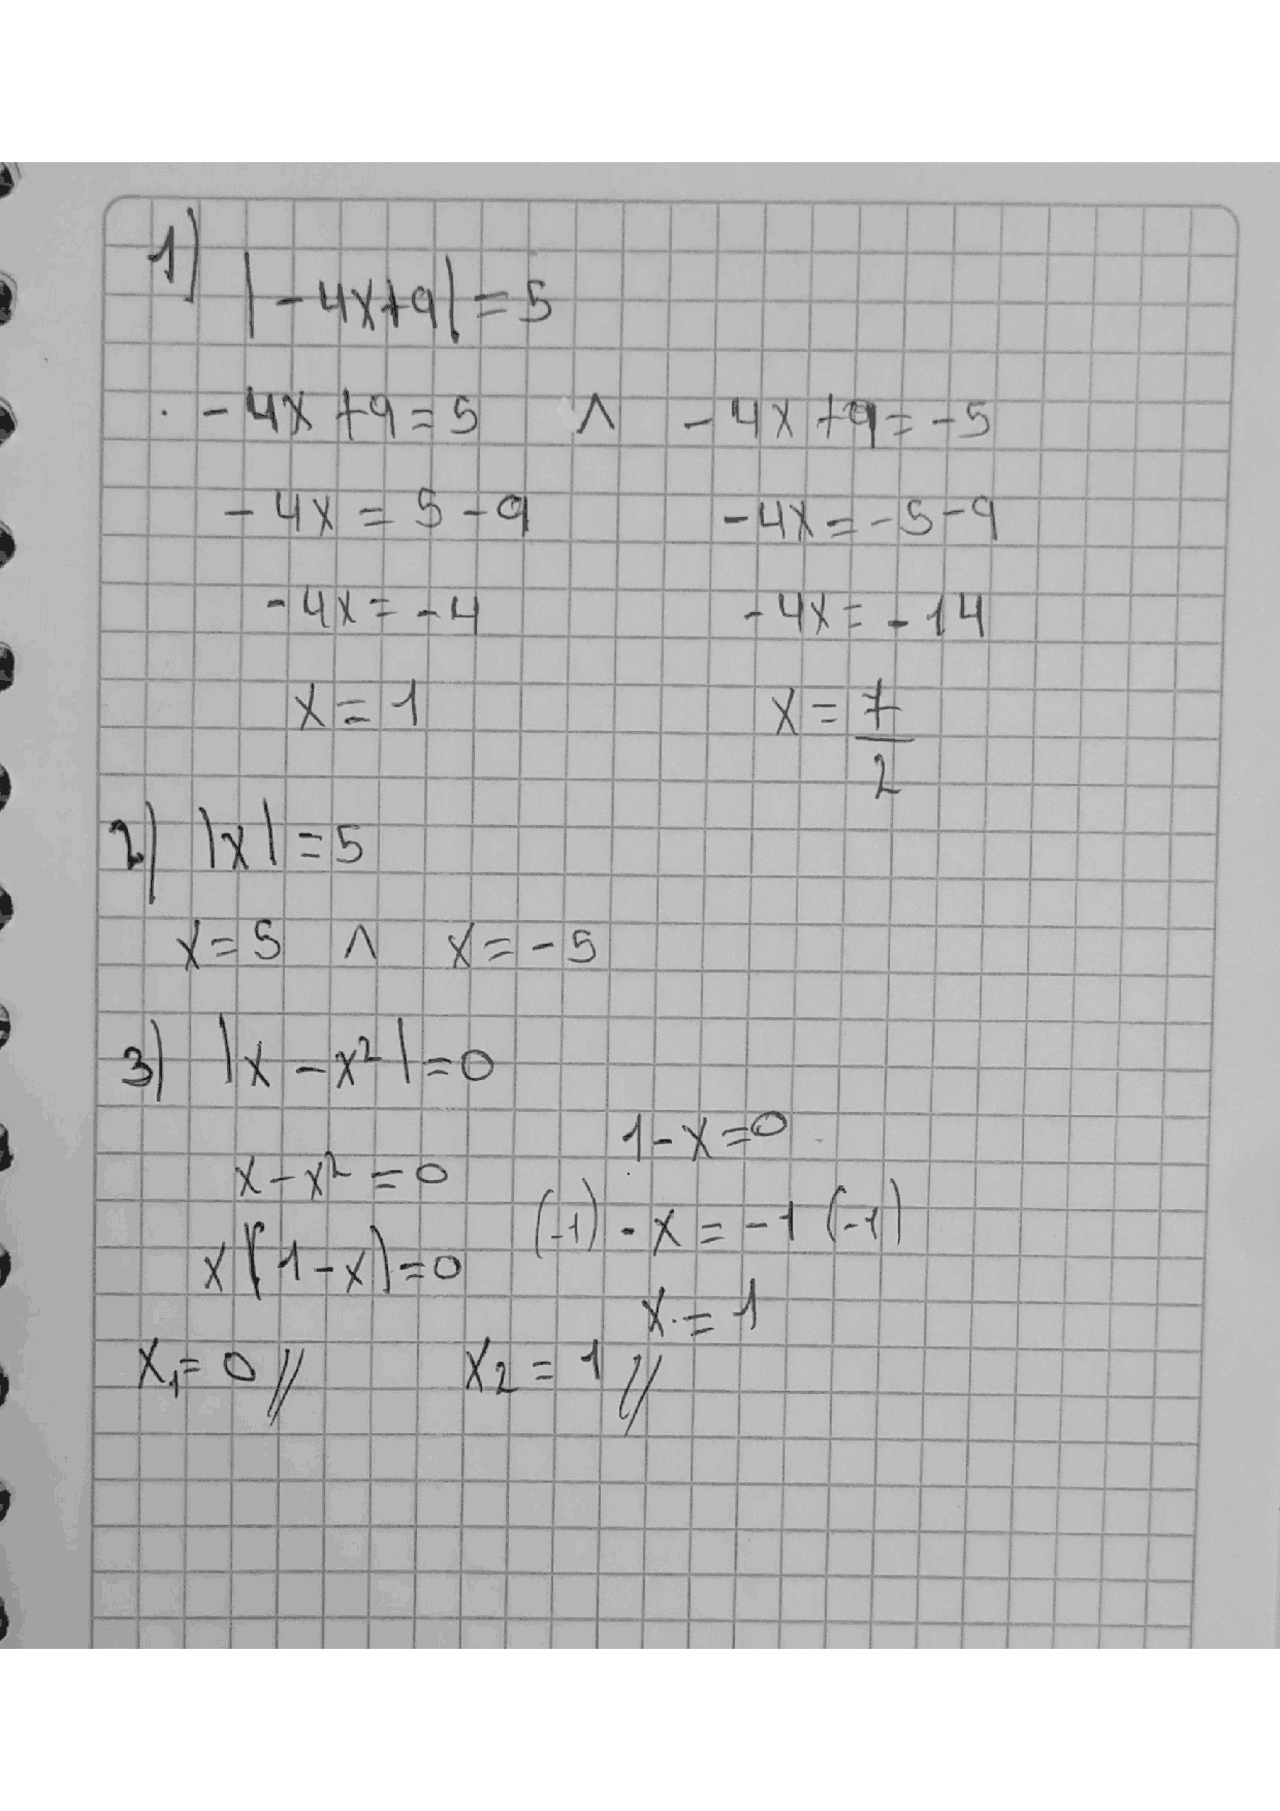 1)
|-4x+9|=5
-4x+9=5 ∧ -4x+9=-5
-4x=5-9 -4x=-5-9
-4x=-4 -4x=-14
x=1 x=7/2
2) |x|=5
x=5 ∧ x=-5
3) |x-x²|=0
1-x=0
x-x²=0
(-1) -x=-1 (-1)
x(1-x)=0
x=1
x₁=0// x₂=1//